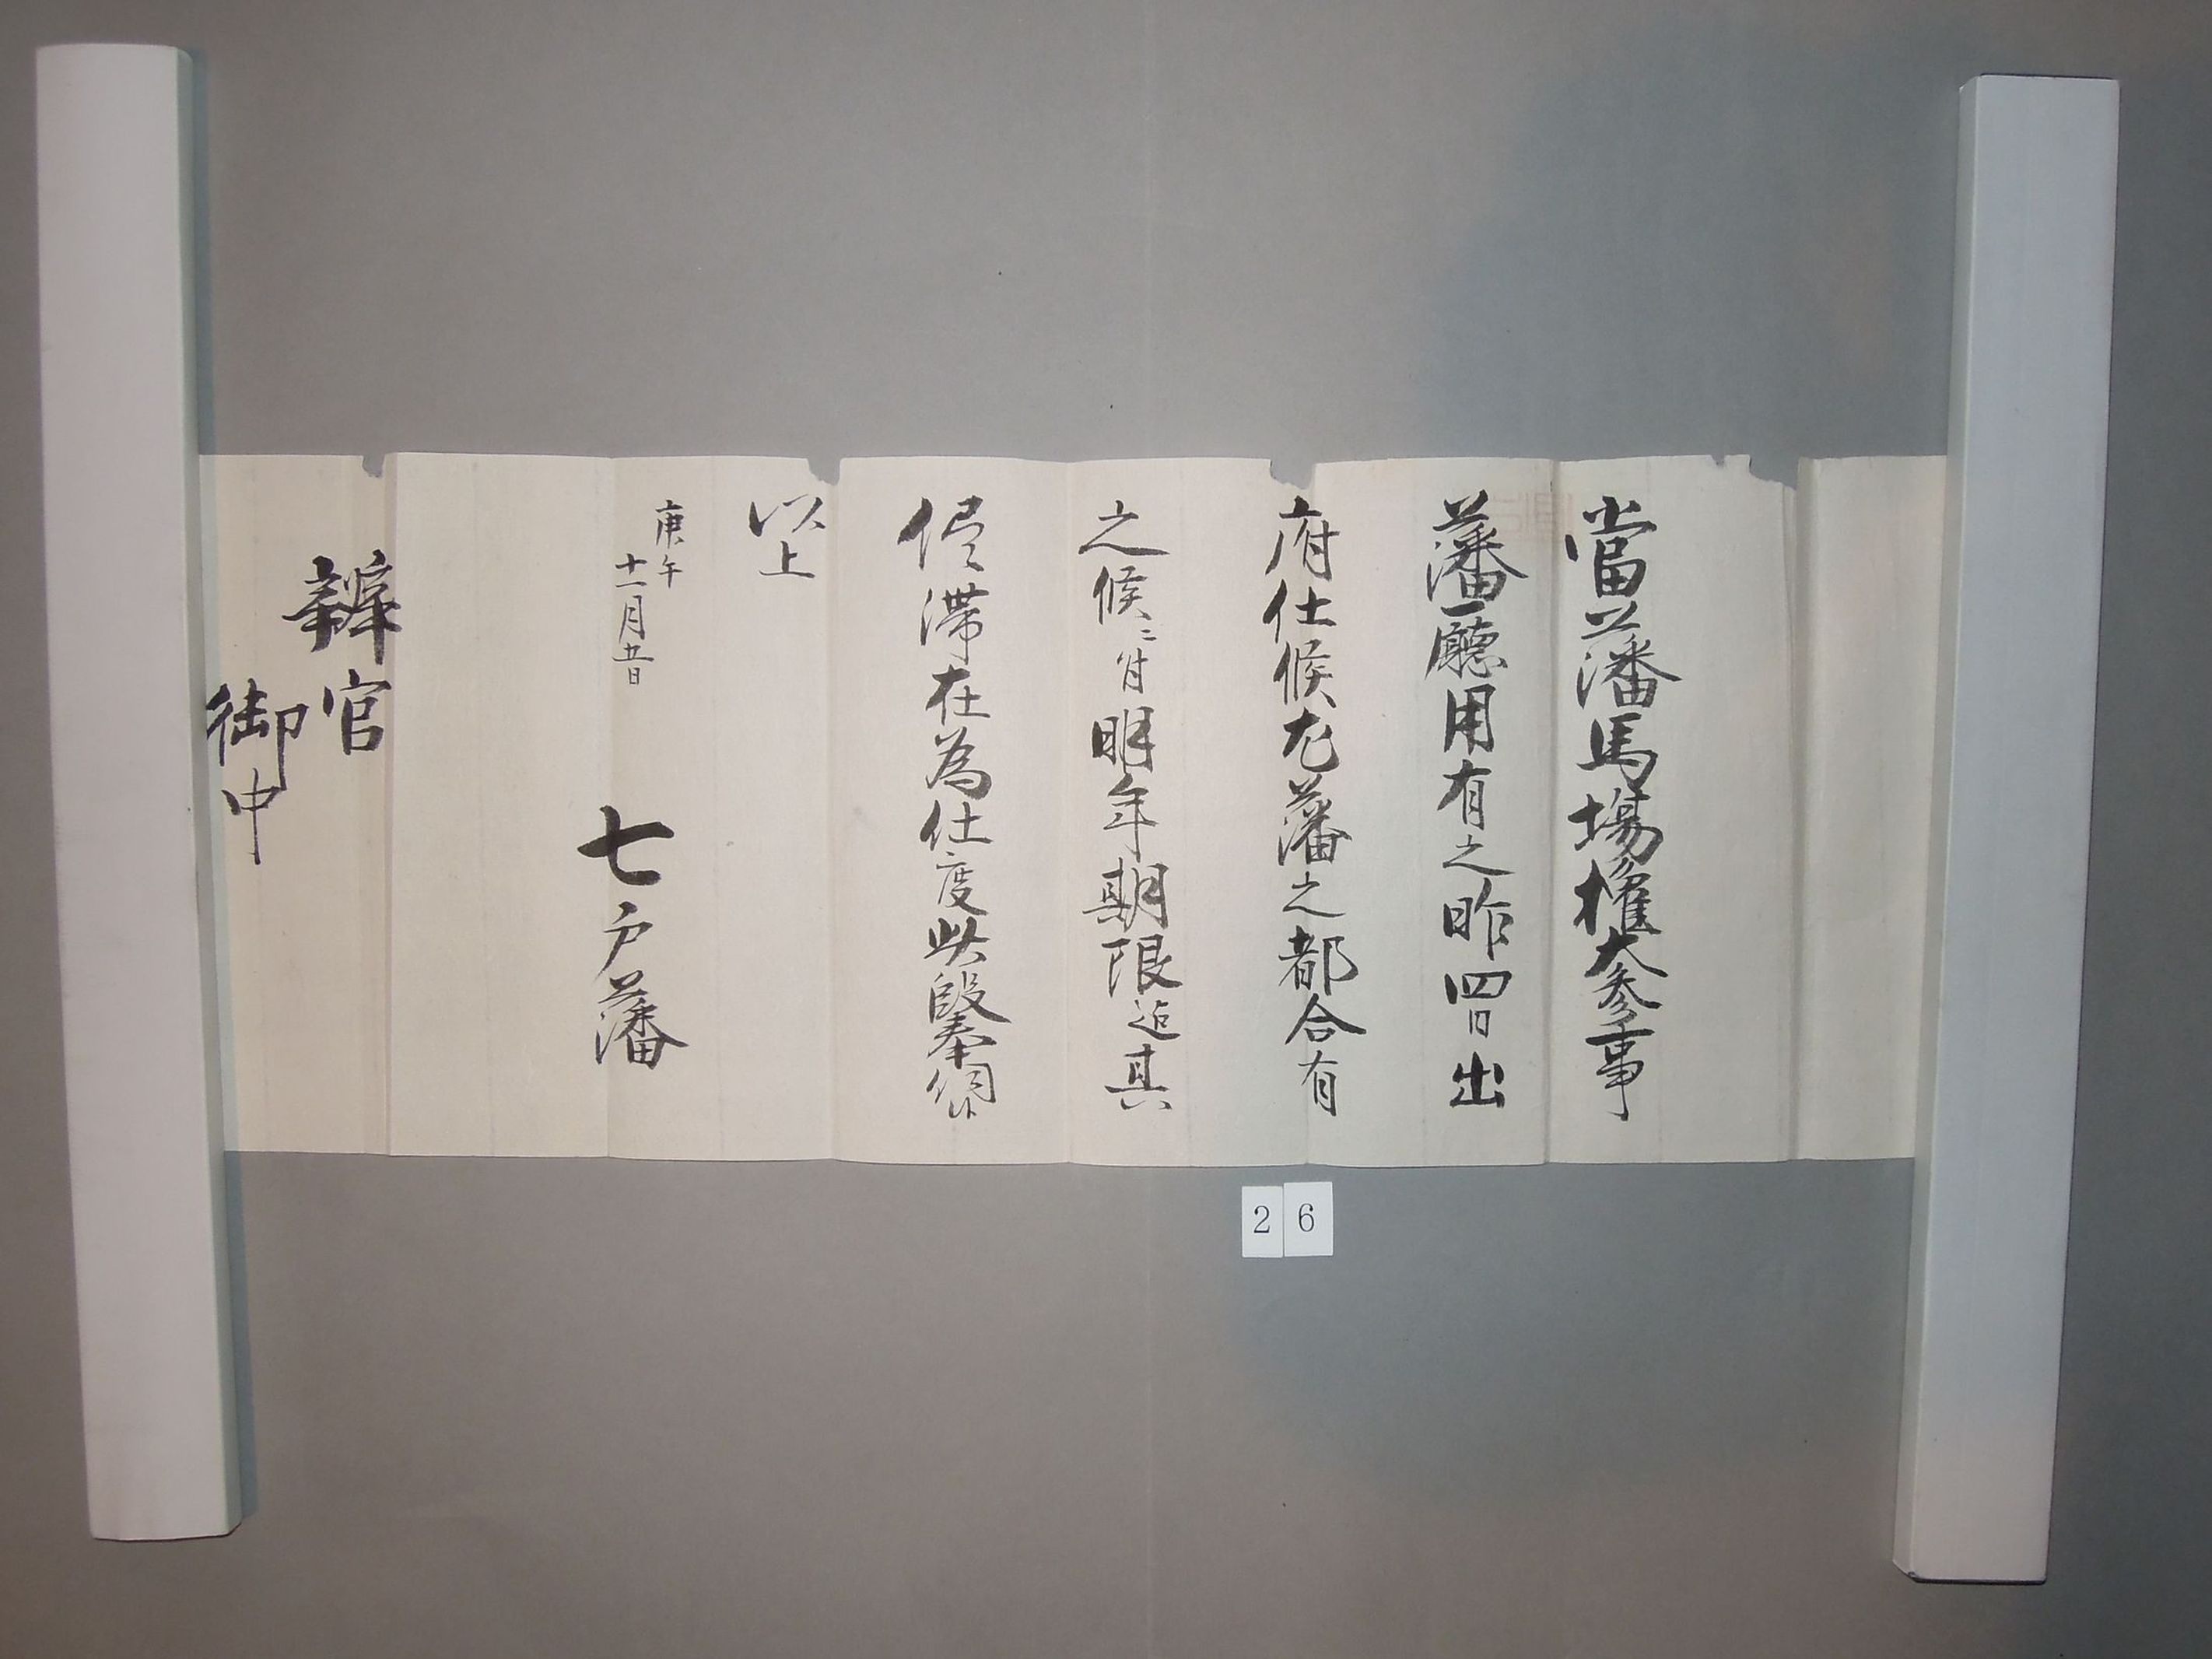 當藩馬場権大参事
藩廳用有之昨四日出
府仕候尤藩之都合有
之候ニ付明年期限迄其
侭滞在為仕度此段奉伺候
以上
庚午
十一月五日
七戸藩
辨官
御中
26